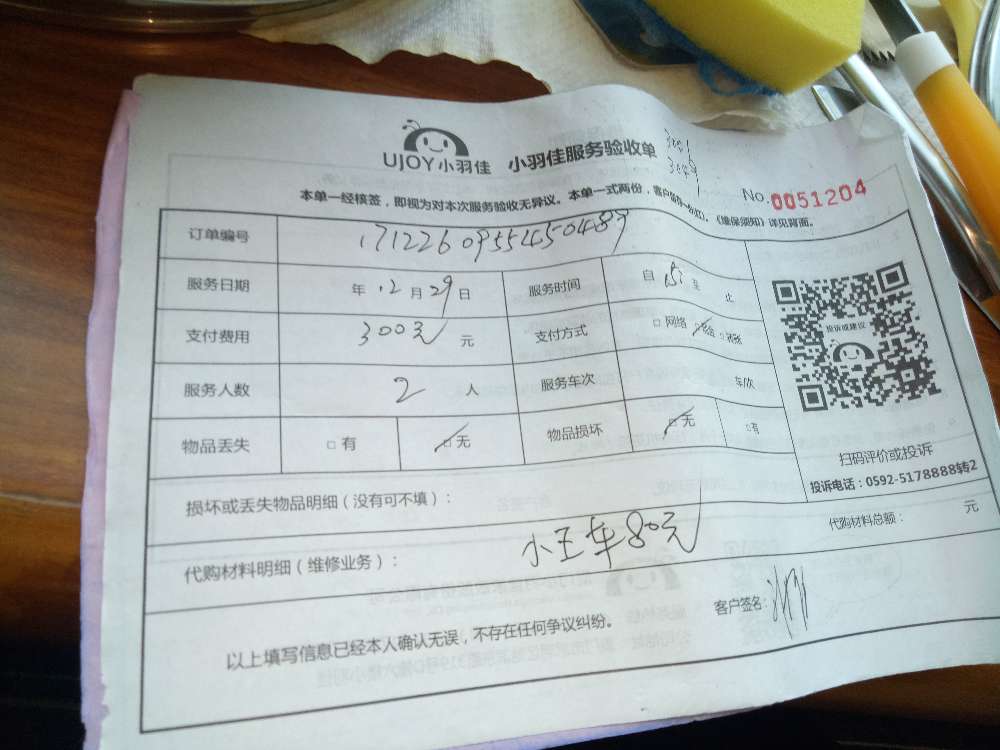 UJOY小羽佳 小羽佳服务验收单
3041
3049
No.0051204
本单一经核签，即视为对本次服务验收无异议。本单一式两份，客户留存一份(红)。《维保须知》详见背面。
订单编号 17122609554550489
服务日期 年 12 月 29 日 服务时间 自 至 止
支付费用 300元 元 支付方式 □ 网络 □ 现金 □ 转账
服务人数 2 人 服务车次 车/次
物品丢失 □ 有 □ 无 物品损坏 □ 无 □ 有
投诉或建议
扫码评价或投诉
投诉电话：0592-5178888转2
损坏或丢失物品明细（没有可不填）：
代购材料明细（维修业务）： 小王车80元 代购材料总额： 元
以上填写信息已经本人确认无误，不存在任何争议纠纷。 客户签名：